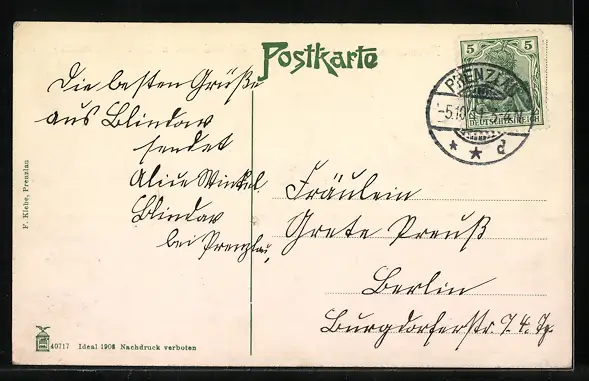 Postkarte
Die besten Grüße
aus Blindow
sendet
Alice Winkel.
Blindow
bei Prenzlau,
Fräulein
Grete Preuß
Berlin
Burgdorferstr. 7. 4. Tp.
5 5
DEUTSCHES REICH
PRENZLAU
-5.10
d
F. Klebe, Prenzlau
40717 Ideal 1908 Nachdruck verboten